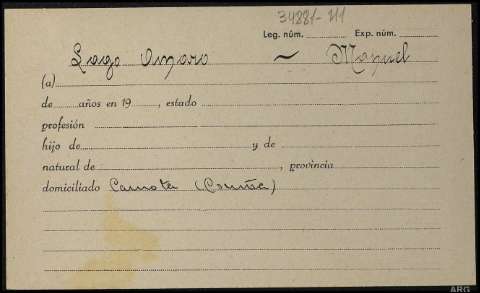 34881-711
Leg. núm. Exp. núm.
Lago Amaro ~ Manuel
(a)
de años en 19 , estado
profesión
hijo de y de
natural de , provincia
domiciliado Carnota (Coruña)
ARG